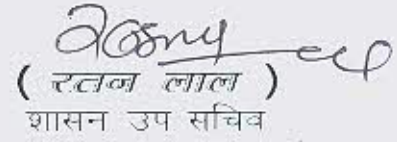 ( रतन लाल )
शासन उप सचिव